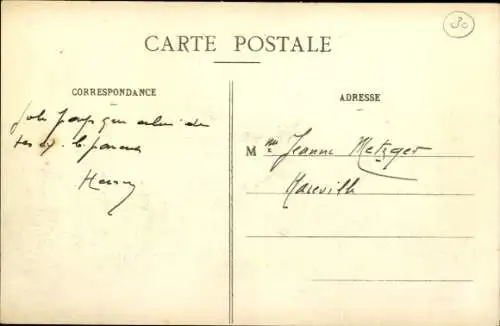 30
CARTE POSTALE
CORRESPONDANCE
ADRESSE
joli pays que celui de
Henry
Mlle Jeanne Metzger
Maréville